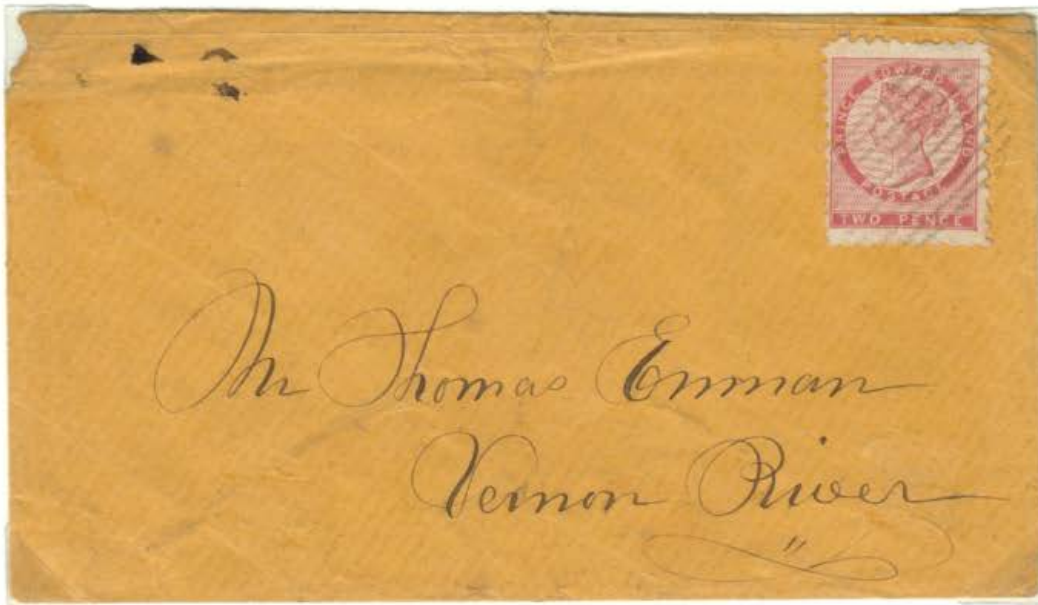 PRINCE EDWARD ISLAND
POSTAGE
TWO PENCE
Mr Thomas Enman
Vernon River
"